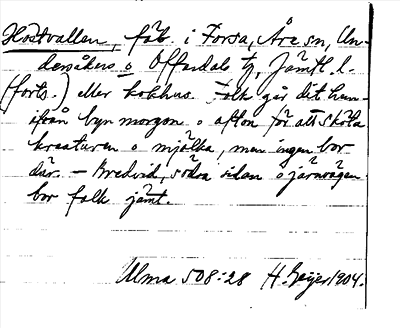 Hostvallen, fäb. i Forsa, Åre sn, Un-
dersåkers o Offerdals tg, Jämtl. l.
(forts.) eller kokhus. Folk går dit hem-
ifrån byn morgon o afton för att sköta
kreaturen o mjölka, men ingen bor
där. – Bredvid, södra sidan o järnvägen
bor folk jämt.
Ulma 508:28 H. Geijer 1904.